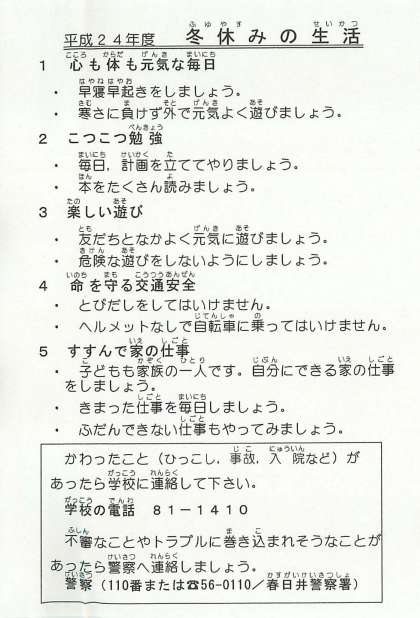 平成24年度　冬休みの生活
1　心も体も元気な毎日
・　早寝早起きをしましょう。
・　寒さに負けず外で元気よく遊びましょう。
2　こつこつ勉強
・　毎日，計画を立ててやりましょう。
・　本をたくさん読みましょう。
3　楽しい遊び
・　友だちとなかよく元気に遊びましょう。
・　危険な遊びをしないようにしましょう。
4　命を守る交通安全
・　とびだしをしてはいけません。
・　ヘルメットなしで自転車に乗ってはいけません。
5　すすんで家の仕事
・　子どもも家族の一人です。自分にできる家の仕事
をしましょう。
・　きまった仕事を毎日しましょう。
・　ふだんできない仕事もやってみましょう。
かわったこと（ひっこし，事故，入院など）が
あったら学校に連絡して下さい。
学校の電話　81－1410
不審なことやトラブルに巻き込まれそうなことが
あったら警察へ連絡しましょう。
警察（110番または☎56-0110／春日井警察署）